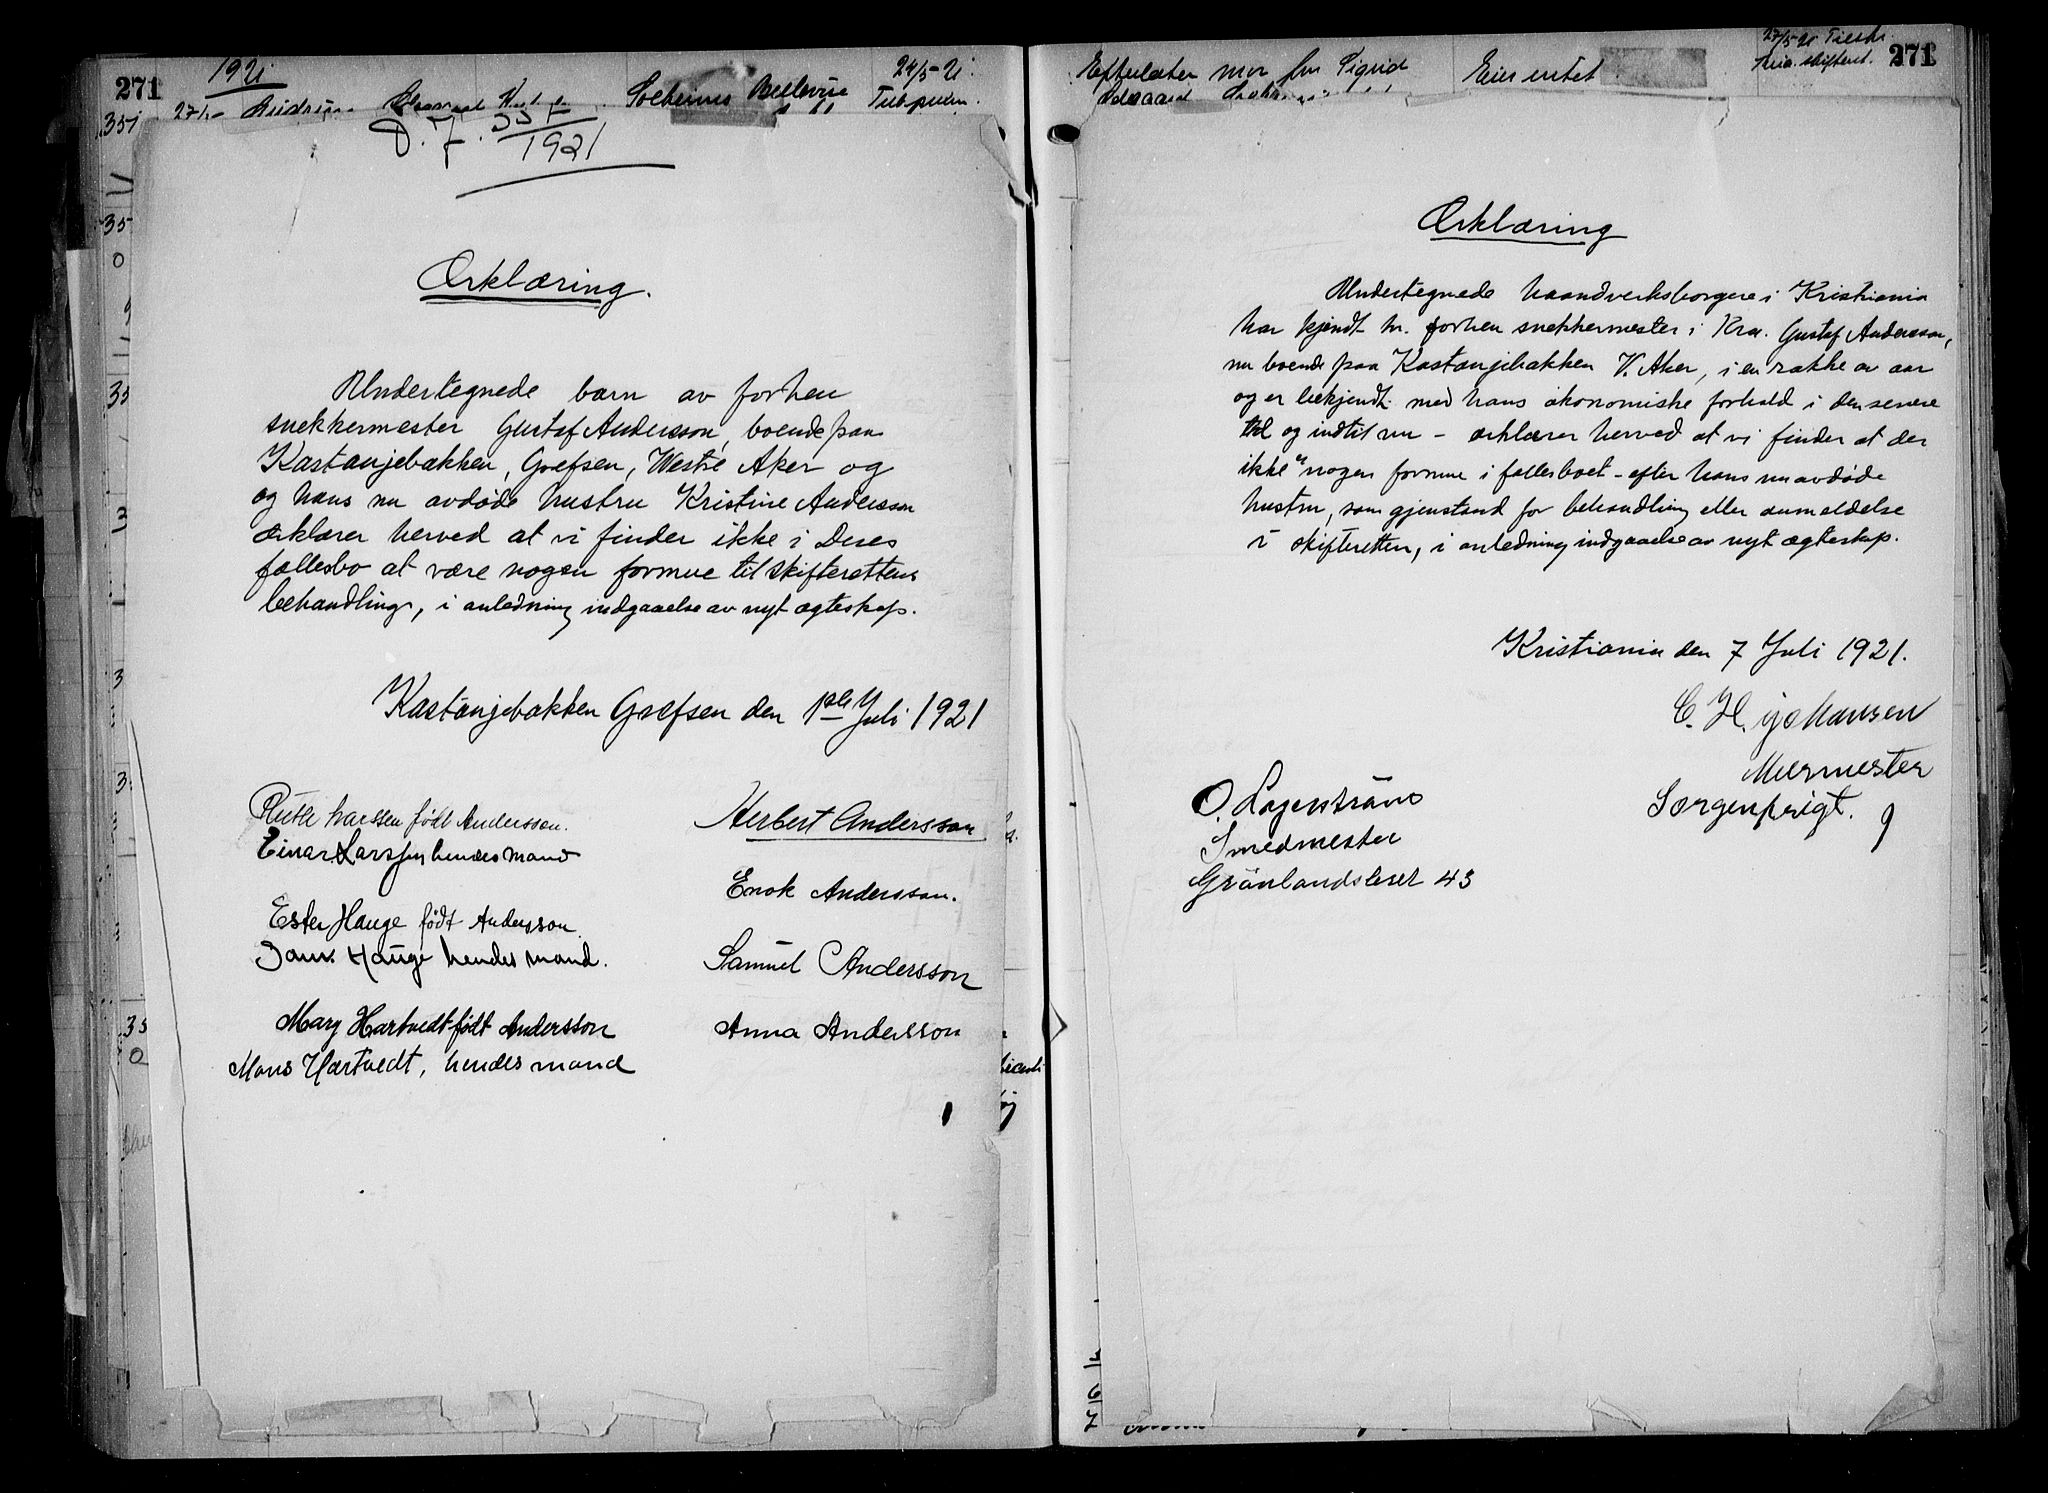 271
1921
24/5-21.
D. J.
1921
Erklæring.
Undertegnede barn av forhen
snekkermester Gustaf Andersson, boende paa
Kastanjebakken, Grefsen, Westre Aker og
og hans nu avdøde hustru Kristine Andersson
erklærer herved at vi finder ikke i Deres
fællesbo at være nogen formue til skifterettens
behandling, i anledning indgaaelse av nyt ægteskap.
Kastanjebakken Grefsen den 1ste Juli 1921
Ruth Larssen født Andersson.
Einar Larssen hendes mand
Ester Hauge født Andersson.
Hauge hendes mand.
Mary Hartvedt født Andersson
Mons Hartvedt, hendes mand
Herbert Andersson
Enok Andersson.
Samuel Andersson
Anna Andersson
Efterlater mor fru Sigrid
Eier intet
27/5-21
271
Erklæring
Undertegnede haandverksborgere i Kristiania
har kjendt hr. forhen snekkermester i Kra. Gustaf Andersson,
nu boende paa Kastanjebakken V. Aker, i en række av aar
og er bekjendt med hans økonomiske forhold i den senere
tid og indtil nu – erklærer herved at vi finder at der
ikke er nogen formue i fællesboet – efter hans nu avdøde
hustru, som gjenstand for behandling eller anmeldelse
i skifteretten, i anledning indgaaelse av nyt ægteskap.
Kristiania den 7 Juli 1921.
C. H. Johansen
Murmester
Sorgenfrigt. 9
O. Lagerström
Smedmester
Grönlandsleret 43